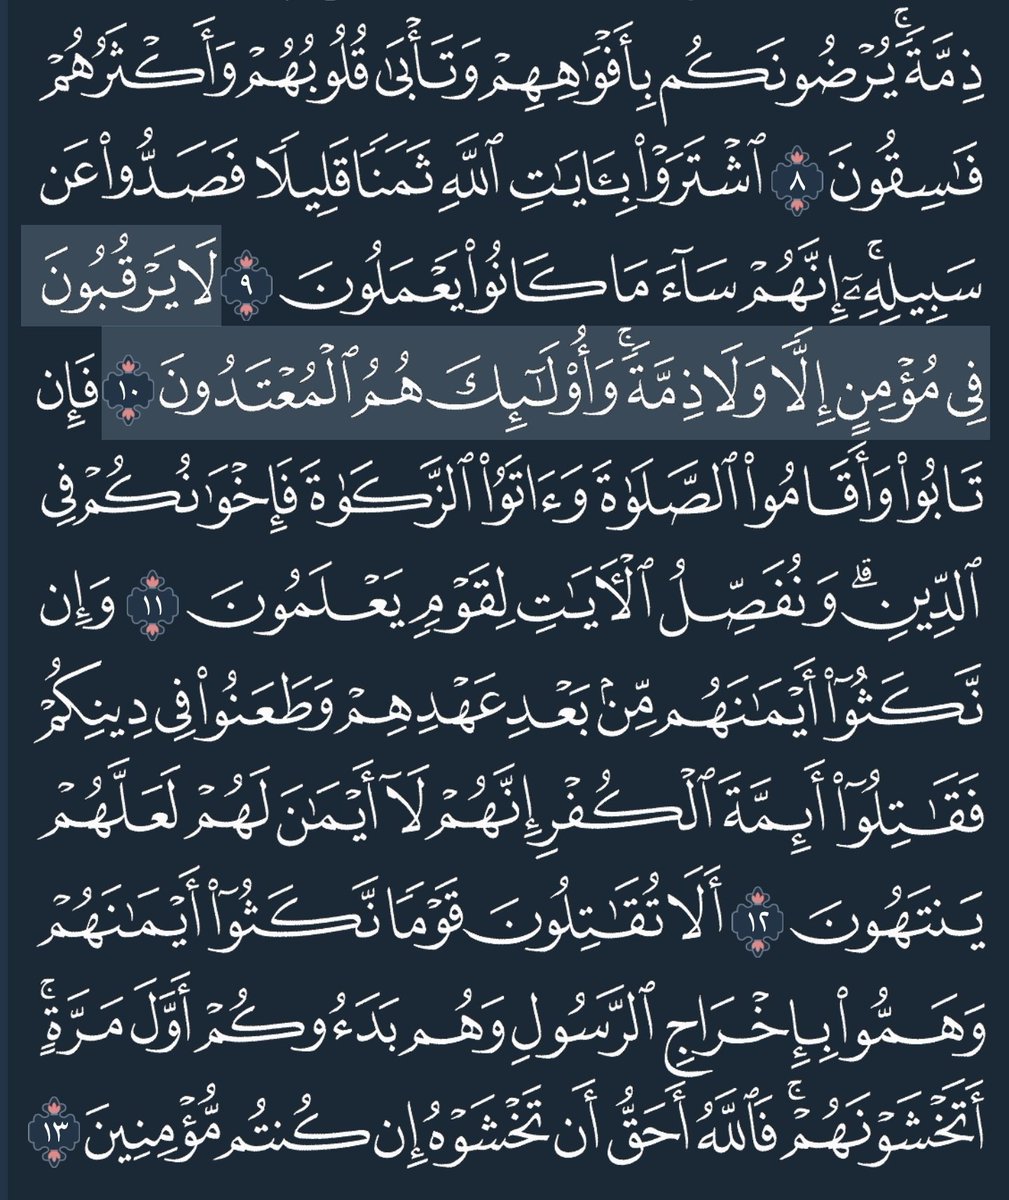 ذِمَّةً ۚ يُرْضُونَكُم بِأَفْوَٰهِهِمْ وَتَأْبَىٰ قُلُوبُهُمْ وَأَكْثَرُهُمْ
فَـٰسِقُونَ ٨ ٱشْتَرَوْا۟ بِـَٔايَـٰتِ ٱللَّهِ ثَمَنًا قَلِيلًا فَصَدُّوا۟ عَن
سَبِيلِهِۦٓ ۚ إِنَّهُمْ سَآءَ مَا كَانُوا۟ يَعْمَلُونَ ٩ لَا يَرْقُبُونَ
فِى مُؤْمِنٍ إِلًّا وَلَا ذِمَّةً ۚ وَأُو۟لَـٰٓئِكَ هُمُ ٱلْمُعْتَدُونَ ١٠ فَإِن
تَابُوا۟ وَأَقَامُوا۟ ٱلصَّلَوٰةَ وَءَاتَوُا۟ ٱلزَّكَوٰةَ فَإِخْوَٰنُكُمْ فِى
ٱلدِّينِ ۗ وَنُفَصِّلُ ٱلْـَٔايَـٰتِ لِقَوْمٍ يَعْلَمُونَ ١١ وَإِن
نَّكَثُوٓا۟ أَيْمَـٰنَهُم مِّنۢ بَعْدِ عَهْدِهِمْ وَطَعَنُوا۟ فِى دِينِكُمْ
فَقَـٰتِلُوٓا۟ أَئِمَّةَ ٱلْكُفْرِ إِنَّهُمْ لَآ أَيْمَـٰنَ لَهُمْ لَعَلَّهُمْ
يَنتَهُونَ ١٢ أَلَا تُقَـٰتِلُونَ قَوْمًا نَّكَثُوٓا۟ أَيْمَـٰنَهُمْ
وَهَمُّوا۟ بِإِخْرَاجِ ٱلرَّسُولِ وَهُم بَدَءُوكُمْ أَوَّلَ مَرَّةٍ ۚ
أَتَخْشَوْنَهُمْ ۚ فَٱللَّهُ أَحَقُّ أَن تَخْشَوْهُ إِن كُنتُم مُّؤْمِنِينَ ١٣